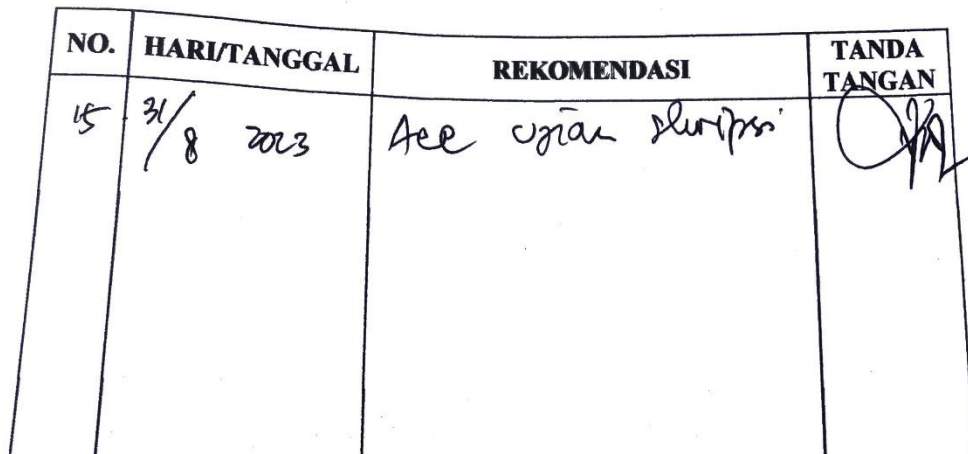 NO. HARI/TANGGAL REKOMENDASI TANDA TANGAN
15 31/8 2023 Acc ujian skripsi